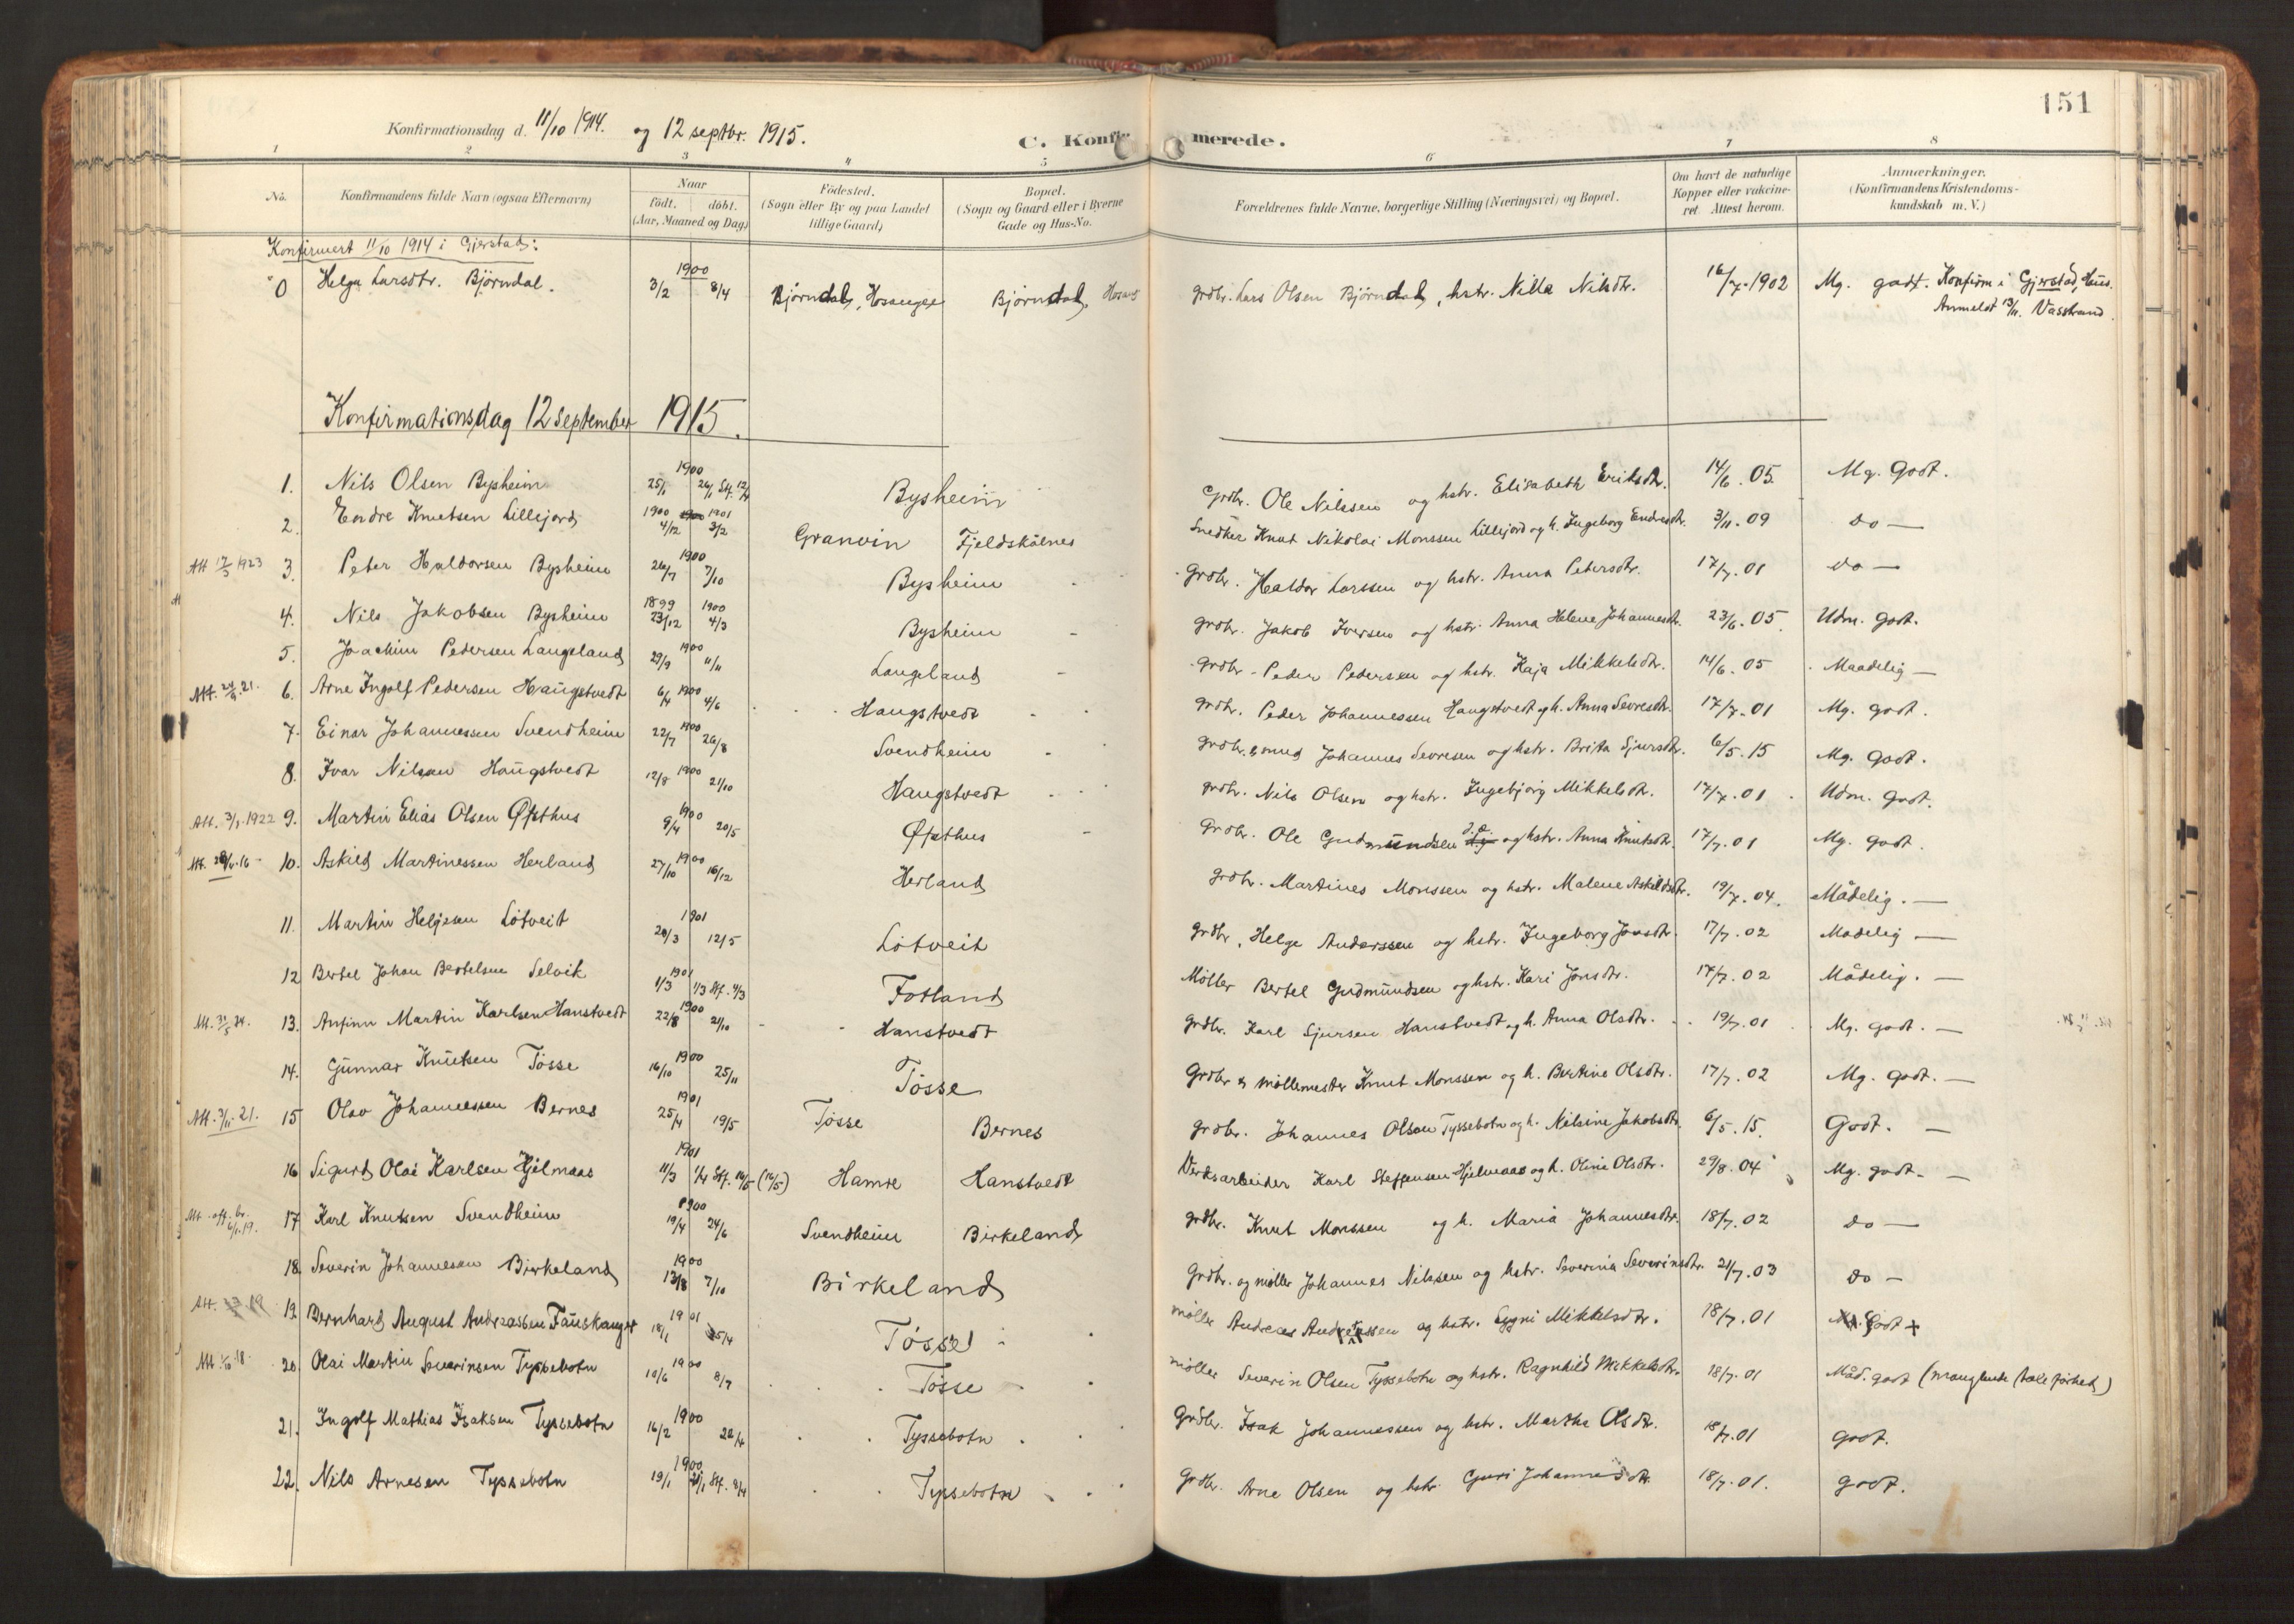 151
Konfirmationsdag d. 11/10 1914. og 12 septbr. 1915.
C. Konfirmerede.
1 2 3 4 5 6 7 8
No. Konfirmandens fulde Navn (ogsaa Efternavn) Naar født. døbt. (Aar, Maaned og Dag) Fødested. (Sogn eller By og paa Landet tillige Gaard) Bopæl. (Sogn og Gaard eller i Byerne Gade og Hus-No. Forældrenes fulde Navne, borgerlige Stilling (Næringsvei) og Bopæl. Om havt de naturlige Kopper eller vakcineret. Attest herom. Anmærkninger. (Konfirmandens Kristendomskundskab m. V.)
Konfirmert 11/10 1914 i Gjerstad:
0 Helga Larsdtr. Bjørndal. 1900 3/2 8/4 Bjørndal, Hosanger Bjørndal, Hosang grdbr. Lars Olsen Bjørndal, hstr. Nilla Nilsdtr. 16/7-1902 Mg. godt. Konfirm i Gjerstad, Haus.
Anmeldt 13/11. Vasstrand.
Konfirmationsdag 12 September 1915.
1. Nils Olsen Bysheim 1900 25/1 26/1 Stf. 12/4 Bysheim Grdbr. Ole Nilssen og hstr. Elisabeth Eriksdtr. 14/6.05 Mg. Godt.
2. Endre Knutsen Lillejord 1900 4/12 1901 3/2 Granvin Fjeldskålnes Snedker Knut Nikolai Monssen Lillejord og h. Ingeborg Endresdtr. 3/11.09 do —
Att 17/3 1923 3. Peter Haldorsen Bysheim 1900 26/7 7/10 Bysheim Grdbr. Haldor Larssen og hstr. Anna Petersdtr. 17/7.01 do —
4. Nils Jakobsen Bysheim 1899 23/12 1900 4/3 Bysheim grdbr. Jakob Iversen og hstr. Anna Helene Johannesdtr. 23/6.05. Udm. godt.
5. Joachim Pedersen Langeland 1900 29/9 11/11 Langeland grdbr. Peder Pedersen og hstr. Kaja Mikkelsdtr. 14/6.05 Maadelig —
Att. 24/9.21. 6. Arne Ingolf Pedersen Haugstvedt 1900 6/4 4/6 Haugstvedt grdbr. Peder Johannessen Haugstvedt og h. Anna Sevresdtr. 17/7.01 Mg. godt.
7. Einar Johannessen Svendheim 1900 22/7 26/8 Svendheim grdbr. & smed Johannes Sevresen og hstr. Brita Sjursdtr. 6/5.15 Mg. godt.
8. Ivar Nilsen Haugstvedt 1900 12/8 21/10 Haugstvedt grdbr. Nils Olsen og hstr. Ingebjørg Mikkelsdtr. 17/7.01 Udm. godt.
Att. 3/1.1922 9. Martin Elias Olsen Øpsthus 1900 9/4 20/5 Øpsthus Grdbr. Ole Gudmundsen og hstr. Anna Knutsdtr. 17/7.01 Mg. godt.
10. Askild Martinessen Herland 1900 27/10 16/12 Herland grdbr. Martines Monssen og hstr. Malene Askildsdtr. 19/7.04. Mådelig. —
11. Martin Helgesen Løtveit 1901 20/3 12/5 Løtveit grdbr. Helge Anderssen og hstr. Ingeborg Jonsdtr. 17/7.02 Madelig —
12 Bertel Johan Bertelsen Selvik 1901 1/3 1/3 Stf. 4/3 Fotland Møller Bertel Gudmundsen og hstr. Kari Jonsdtr. 17/7.02 Mådelig. —
Att. 31/5 24. 13. Anfinn Martin Karlsen Hanstvedt 1900 22/8 21/10 Hanstvedt grdbr. Karl Sjursen Hanstvedt og h. Anna Olsdtr. 19/7.01 Mg. godt. —
14. Gunnar Knutsen Tøsse 1900 16/10 25/11 Tøsse Grdbr & møllemester Knut Monssen og h. Bertine Olsdtr. 17/7.02 Mg. Godt. —
Att. 3/11.21. 15 Olav Johannessen Bernes 1901 25/4 19/5 Tøsse Bernes grdbr. Johannes Olsen Tyssebotn og h. Nilsine Jakobsdtr. 6/5.15. Godt. —
16 Sigurd Olai Karlsen Hjelmaas 1901 11/3 1/4 Stf. 16/5 (16/5) Hamre Hanstvedt Verksarbeider Karl Steffensen Hjelmaas og h. Oline Olsdtr. 29/8.04 Mg. godt. —
17 Karl Knutsen Svendheim 1900 19/4 24/6 Svendheim Birkeland grdbr. Knut Monssen og h. Maria Johannesdtr. 18/7.02 do —
18. Severin Johannessen Birkeland 1900 13/8 7/10 Birkeland Grdbr. og møller Johannes Nilssen og hstr. Severina Severinsdtr. 21/7.03 do —
19. Bernhard August Andreassen Fauskanger 1901 18/1 25/4 Tøsse møller Andreas Andreassen og hstr. Sygni Mikkelsdtr. 18/7.01 Mg. Godt +
20. Olai Martin Severinsen Tyssebotn 1900 10/6 8/7 Tøsse møller Severin Olsen Tyssebotn og hstr. Ragnhild Mikkelsdtr. 18/7.01 Måd. godt (manglende taleførhed)
21. Ingolf Mathias Isaksen Tyssebotn 1900 16/2 22/4 Tyssebotn Grdbr. Isak Johannessen og hstr. Martha Olsdtr. 18/7.01 godt.
22. Nils Arnesen Tyssebotn 1900 19/1 Stf. Tyssebotn Grdbr. Arne Olsen og hstr. Guri Johannesdtr. 18/7.01. godt.